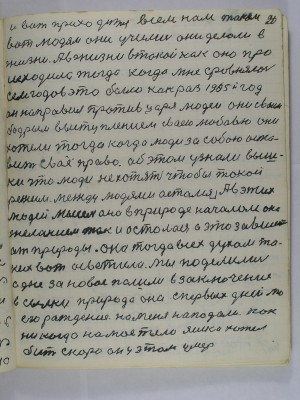 20
и вот прихо дити всем нам таким
вот людям они учили они делали в
жизни. А в жизни втакой как оно про
исходило тогда когда мне сровнялос
сем годов это было как раз 1905й год
он направил против царя люди они своим
бодрым выступлением своею любовью они
хотели тогда когда люди за собою оста
вит своя право. об этом узнали выш
ки что люди нехотят чтобы такой
режим между людями остался. А в этих
людей она в природе началом
желанием так и осталася а это зависит
от природы. она тогда всех духом та
ких вот осветила. мы поделили
одне за новое пошли в заключения
в ссылки природа она спервых дней мо
его рождение. наменя нападала как
ни когда на мое тело яшка хотел
быть скоро он у этом умер